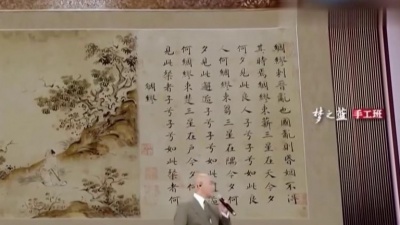 綢繆刺晉亂也國亂則婚姻不得
其時焉綢繆束薪三星在天今夕
何夕見此良人子兮子兮如此良
人何綢繆束芻三星在隅今夕何
夕見此邂逅子兮子兮如此
何綢繆束楚三星在戶今夕何
見此粲者子兮子兮如此粲者何
綢繆
梦之蓝 手工班